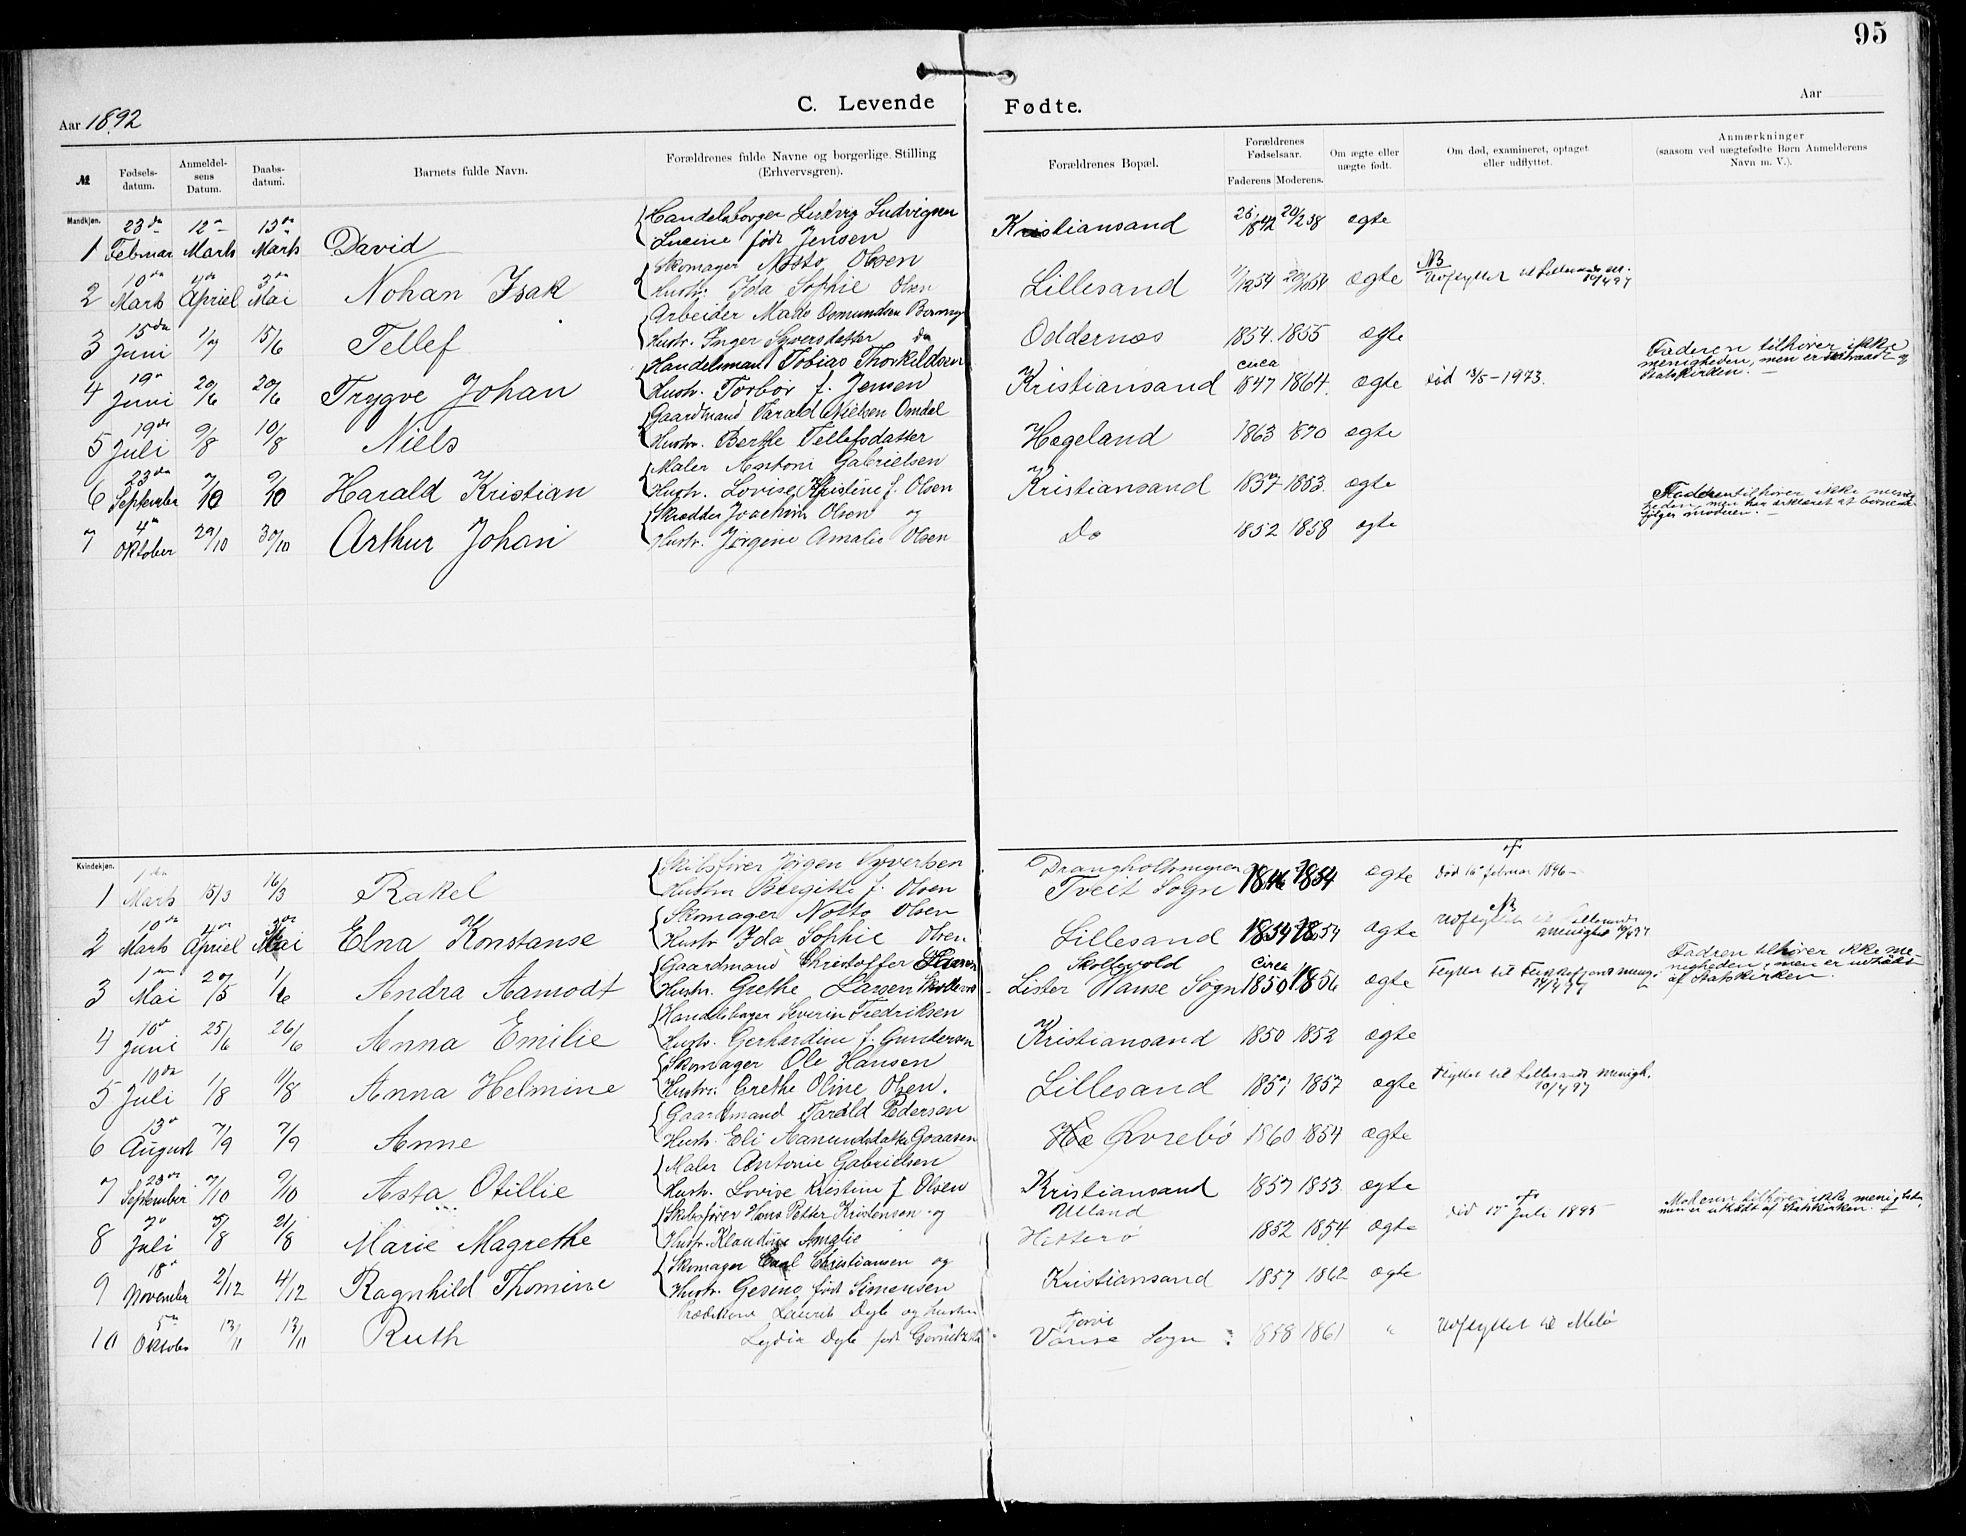 95
Aar 1892
C. Levende Fødte.
Aar
№
Fødsels-datum.
Anmeldel-sens Datum.
Daabs-datum.
Barnets fulde Navn.
Forældrenes fulde Navne og borgerlige Stilling (Erhvervsgren).
Forældrenes Bopæl.
Forældrenes Fødselsaar.
Faderens
Moderens.
Om ægte eller uægte født.
Om død, examineret, optaget eller udflyttet.
Anmærkninger (saasom ved uægtefødte Børn Anmelderens Navn m. V.).
Mandkjøn.
1 23de Februar 12te Marts 13de Marts David Handelsborger Ludvig Ludvigsen
Lucine født Jensen Kristiansand ægte
2 10de Marts Apriel Mai Nohan Isak Skomager Notto Olsen
Hustr. Ida Sophie Olsen Lillesand ægte NB Udflyttet til Lillesands
3 15de Juni 1/7 15/6 Tellef Arbeider Mads Osmundsen
Hustr. Inger Syversdatter do Oddernæs 1854 1855 ægte
4 19de Juni 20/6 20/6 Trygve Johan Handelsmand Tobias Thorkildsen
Hustr. Torbor f. Jensen Kristiansand circa 1847 1864 ægte død 13/5-1973. Faderen tilhører ikke
menigheden, men er udtraadt af
Statskirken.
5 19de Juli 9/8 10/8 Niels Gaardmand Tarald Nielsen Omdal
Hustr. Berthe Tellefsdatter Hægeland 1863 1870 ægte
6 23de September 7/10 9/10 Harald Kristian Maler Antoni Gabrielsen
Hustr. Lovise Kristine f. Olsen Kristiansand 1857 1853 ægte Faderen tilhører ikke menig-
heden, men har erklæret at børnene
følger moderen.
7 4de Oktober 29/10 30/10 Arthur Johan Skrædder Joachim Olsen og
Hustr. Jørgine Amalie Olsen Do 1852 1858 ægte
Kvindekjøn.
1 1ste Marts 15/3 16/3 Rakel Skibsfører Jørgen Syvertsen
Hustru Bergitte f. Olsen Drangholtsmyren
Tveit Sogn 1846 1854 ægte Død 16 februar 1896
2 10de Marts Apriel Mai Elna Konstanse Skomager Notto Olsen
Hustr Ida Sophie Olsen Lillesand 1854 1854 ægte NB Udflyttet til Lillesands
menighed
3 1ste Mai 20/5 1/6 Andra Aamodt Gaardmand Christoffer Larsen
Hustr. Grethe Larsen Skollevold
Lister Vanse Sogn circa 1850 1856 ægte Flyttet til Flekkefjords menig. Fadren tilhører ikke me-
nigheden, men er udtrådt
af Statskirken.
4 10de Juni 25/6 26/6 Anna Emilie Handelsborger Severin Fredriksen
Hustr. Gerhardine f. Gundersen Kristiansand 1850 1852 ægte
5 10de Juli 1/8 11/8 Anna Helmine Skomager Ole Hansen
Hustr. Grethe Oline Olsen. Lillesand 1857 1857 ægte Flyttet til Lillesands menigh.
10/4 97
6 13de August 7/9 7/9 Anne Gaardmand Tarald Pedersen
Hustr. Eli Aanundsdatter Gaasen Øvrebø 1860 1854 ægte
7 23de September 7/10 9/10 Asta Otillie Maler Antonie Gabrielsen
Hustr. Lovise Kristine f Olsen Kristiansand 1857 1853 ægte
8 7de Juli 5/8 21/8 Marie Magrethe Skibsfører Hans Petter Kristensen og
Hustr. Klaudine Amalie Ulland
Hitterø 1852 1854 ægte død 17 Juli 1895 Moderen tilhører ikke menighed.
men er utrådt af Statskirken.
9 18de November 2/12 4/12 Ragnhild Thomine Skomager Christiansen og
Hustr. Gesine født Simonsen Kristiansand 1857 1862 ægte
10 5te Oktober 13/11 13/11 Ruth Laurits Dyle og hustru
Lydia Dyle født Vanse Sogn 1858 1861 " Udflyttet til Melø